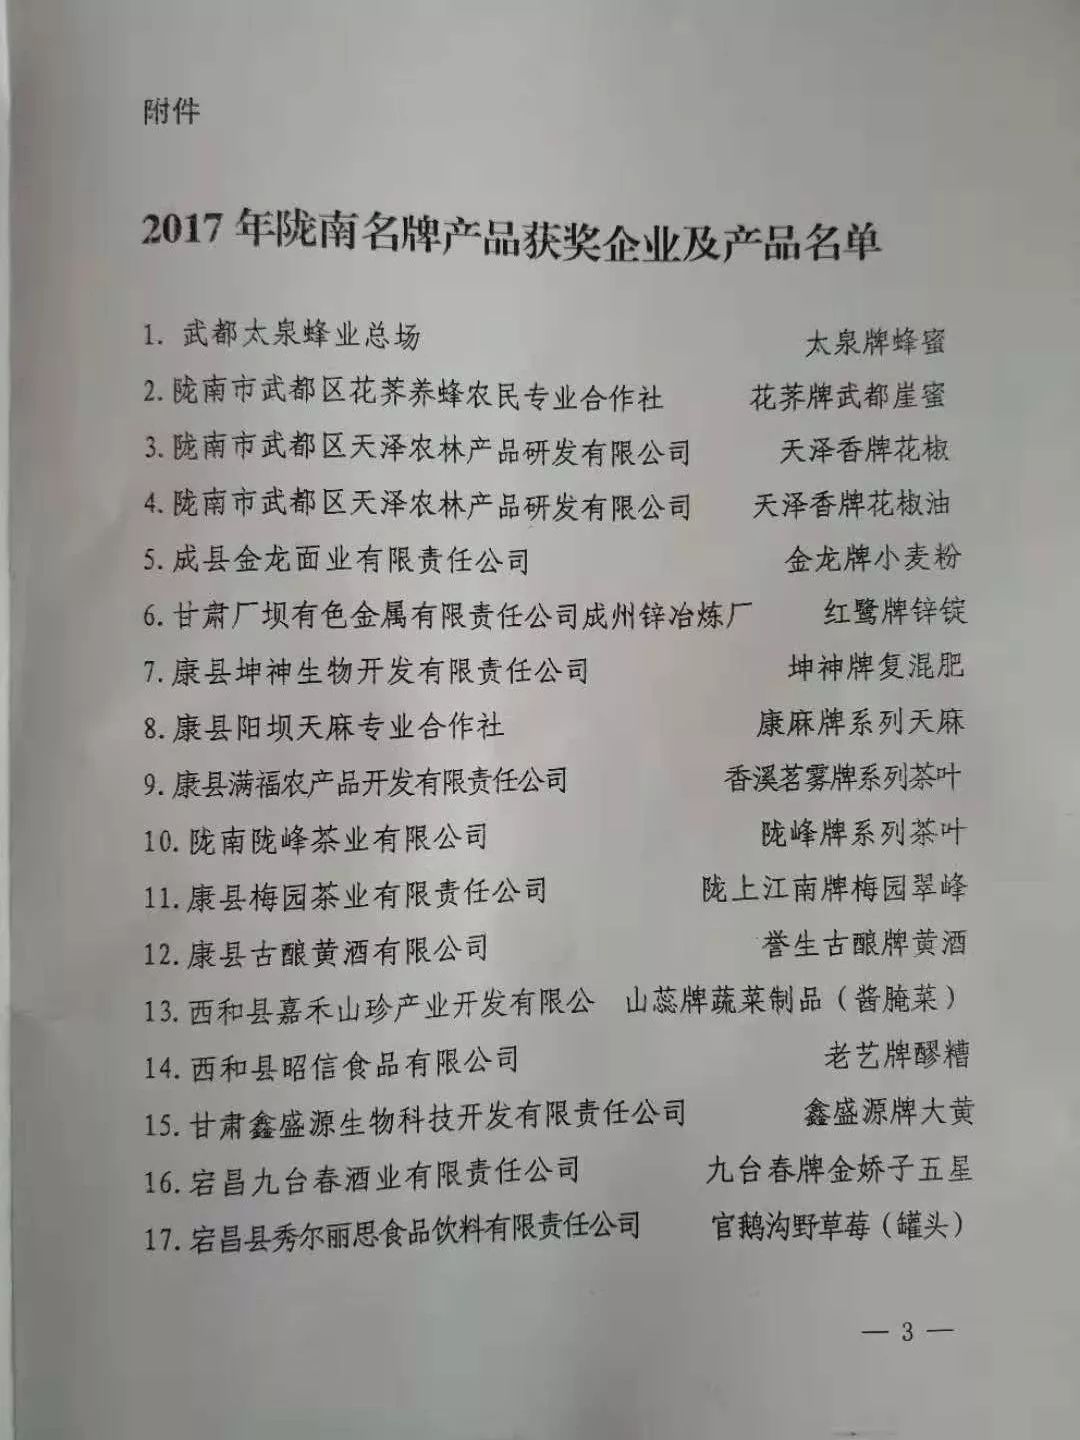 附件
2017年陇南名牌产品获奖企业及产品名单
1. 武都太泉蜂业总场 太泉牌蜂蜜
2.陇南市武都区花荞养蜂农民专业合作社 花荞牌武都崖蜜
3.陇南市武都区天泽农林产品研发有限公司 天泽香牌花椒
4.陇南市武都区天泽农林产品研发有限公司 天泽香牌花椒油
5.成县金龙面业有限责任公司 金龙牌小麦粉
6.甘肃厂坝有色金属有限责任公司成州锌冶炼厂 红鹭牌锌锭
7.康县坤神生物开发有限责任公司 坤神牌复混肥
8.康县阳坝天麻专业合作社 康麻牌系列天麻
9.康县满福农产品开发有限责任公司 香溪茗雾牌系列茶叶
10.陇南陇峰茶业有限公司 陇峰牌系列茶叶
11.康县梅园茶业有限责任公司 陇上江南牌梅园翠峰
12.康县古酿黄酒有限公司 誉生古酿牌黄酒
13.西和县嘉禾山珍产业开发有限公 山蕊牌蔬菜制品（酱腌菜）
14.西和县昭信食品有限公司 老艺牌醪糟
15.甘肃鑫盛源生物科技开发有限责任公司 鑫盛源牌大黄
16.宕昌九台春酒业有限责任公司 九台春牌金娇子五星
17.宕昌县秀尔丽思食品饮料有限责任公司 官鹅沟野草莓（罐头）
— 3 —